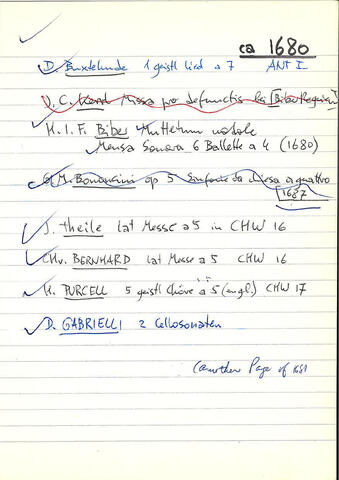 ca 1680
D. Buxtehude 1 geistl Lied a 7 ANT I
J. C. Kerll Missa pro defunctis bei [Biber Requiem]
H. I. F. Biber Muttetum natale
Mensa Sonora 6 Ballette a 4 (1680)
G. M. Bononcini op 5 Sinfonie da chiesa a quattro
1687
J. Theile lat Messe a 5 in CHW 16
Chr. BERNHARD lat Messe a 5 CHW 16
H. PURCELL 5 geistl Chöre a 5 (engl) CHW 17
D. GABRIELLI 2 Cellosonaten
(another Page of 1681